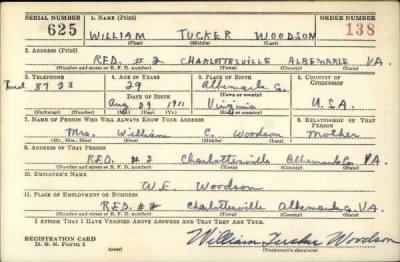 SERIAL NUMBER 1. NAME (Print) ORDER NUMBER
625 WILLIAM TUCKER WOODSON 138
(First) (Middle) (Last)
2. ADDRESS (Print)
R.F.D. # 2 CHARLOTTESVILLE ALBEMARLE VA.
(Number and street or R. F. D. number) (Town) (County) (State)
3. TELEPHONE 4. AGE IN YEARS 5. PLACE OF BIRTH 6. COUNTRY OF CITIZENSHIP
Rural 8723 29 Albemarle Co.
DATE OF BIRTH (Town or county)
Aug 29 1911 Virginia U.S.A.
(Exchange) (Number) (Mo.) (Day) (Yr.) (State or country)
7. NAME OF PERSON WHO WILL ALWAYS KNOW YOUR ADDRESS 8. RELATIONSHIP OF THAT PERSON
Mrs. William E. Woodson Mother
(Mr., Mrs., Miss) (First) (Middle) (Last)
9. ADDRESS OF THAT PERSON
R.F.D. # 2 Charlottesville Albemarle Co. VA.
(Number and street or R. F. D. number) (Town) (County) (State)
10. EMPLOYER'S NAME
W.E. Woodson
11. PLACE OF EMPLOYMENT OR BUSINESS
R.F.D. # 2 Charlottesville Albemarle Co. VA.
(Number and street or R. F. D. number) (Town) (County) (State)
I AFFIRM THAT I HAVE VERIFIED ABOVE ANSWERS AND THAT THEY ARE TRUE.
REGISTRATION CARD
D. S. S. Form 1 William Tucker Woodson
(over) (Registrant's signature)